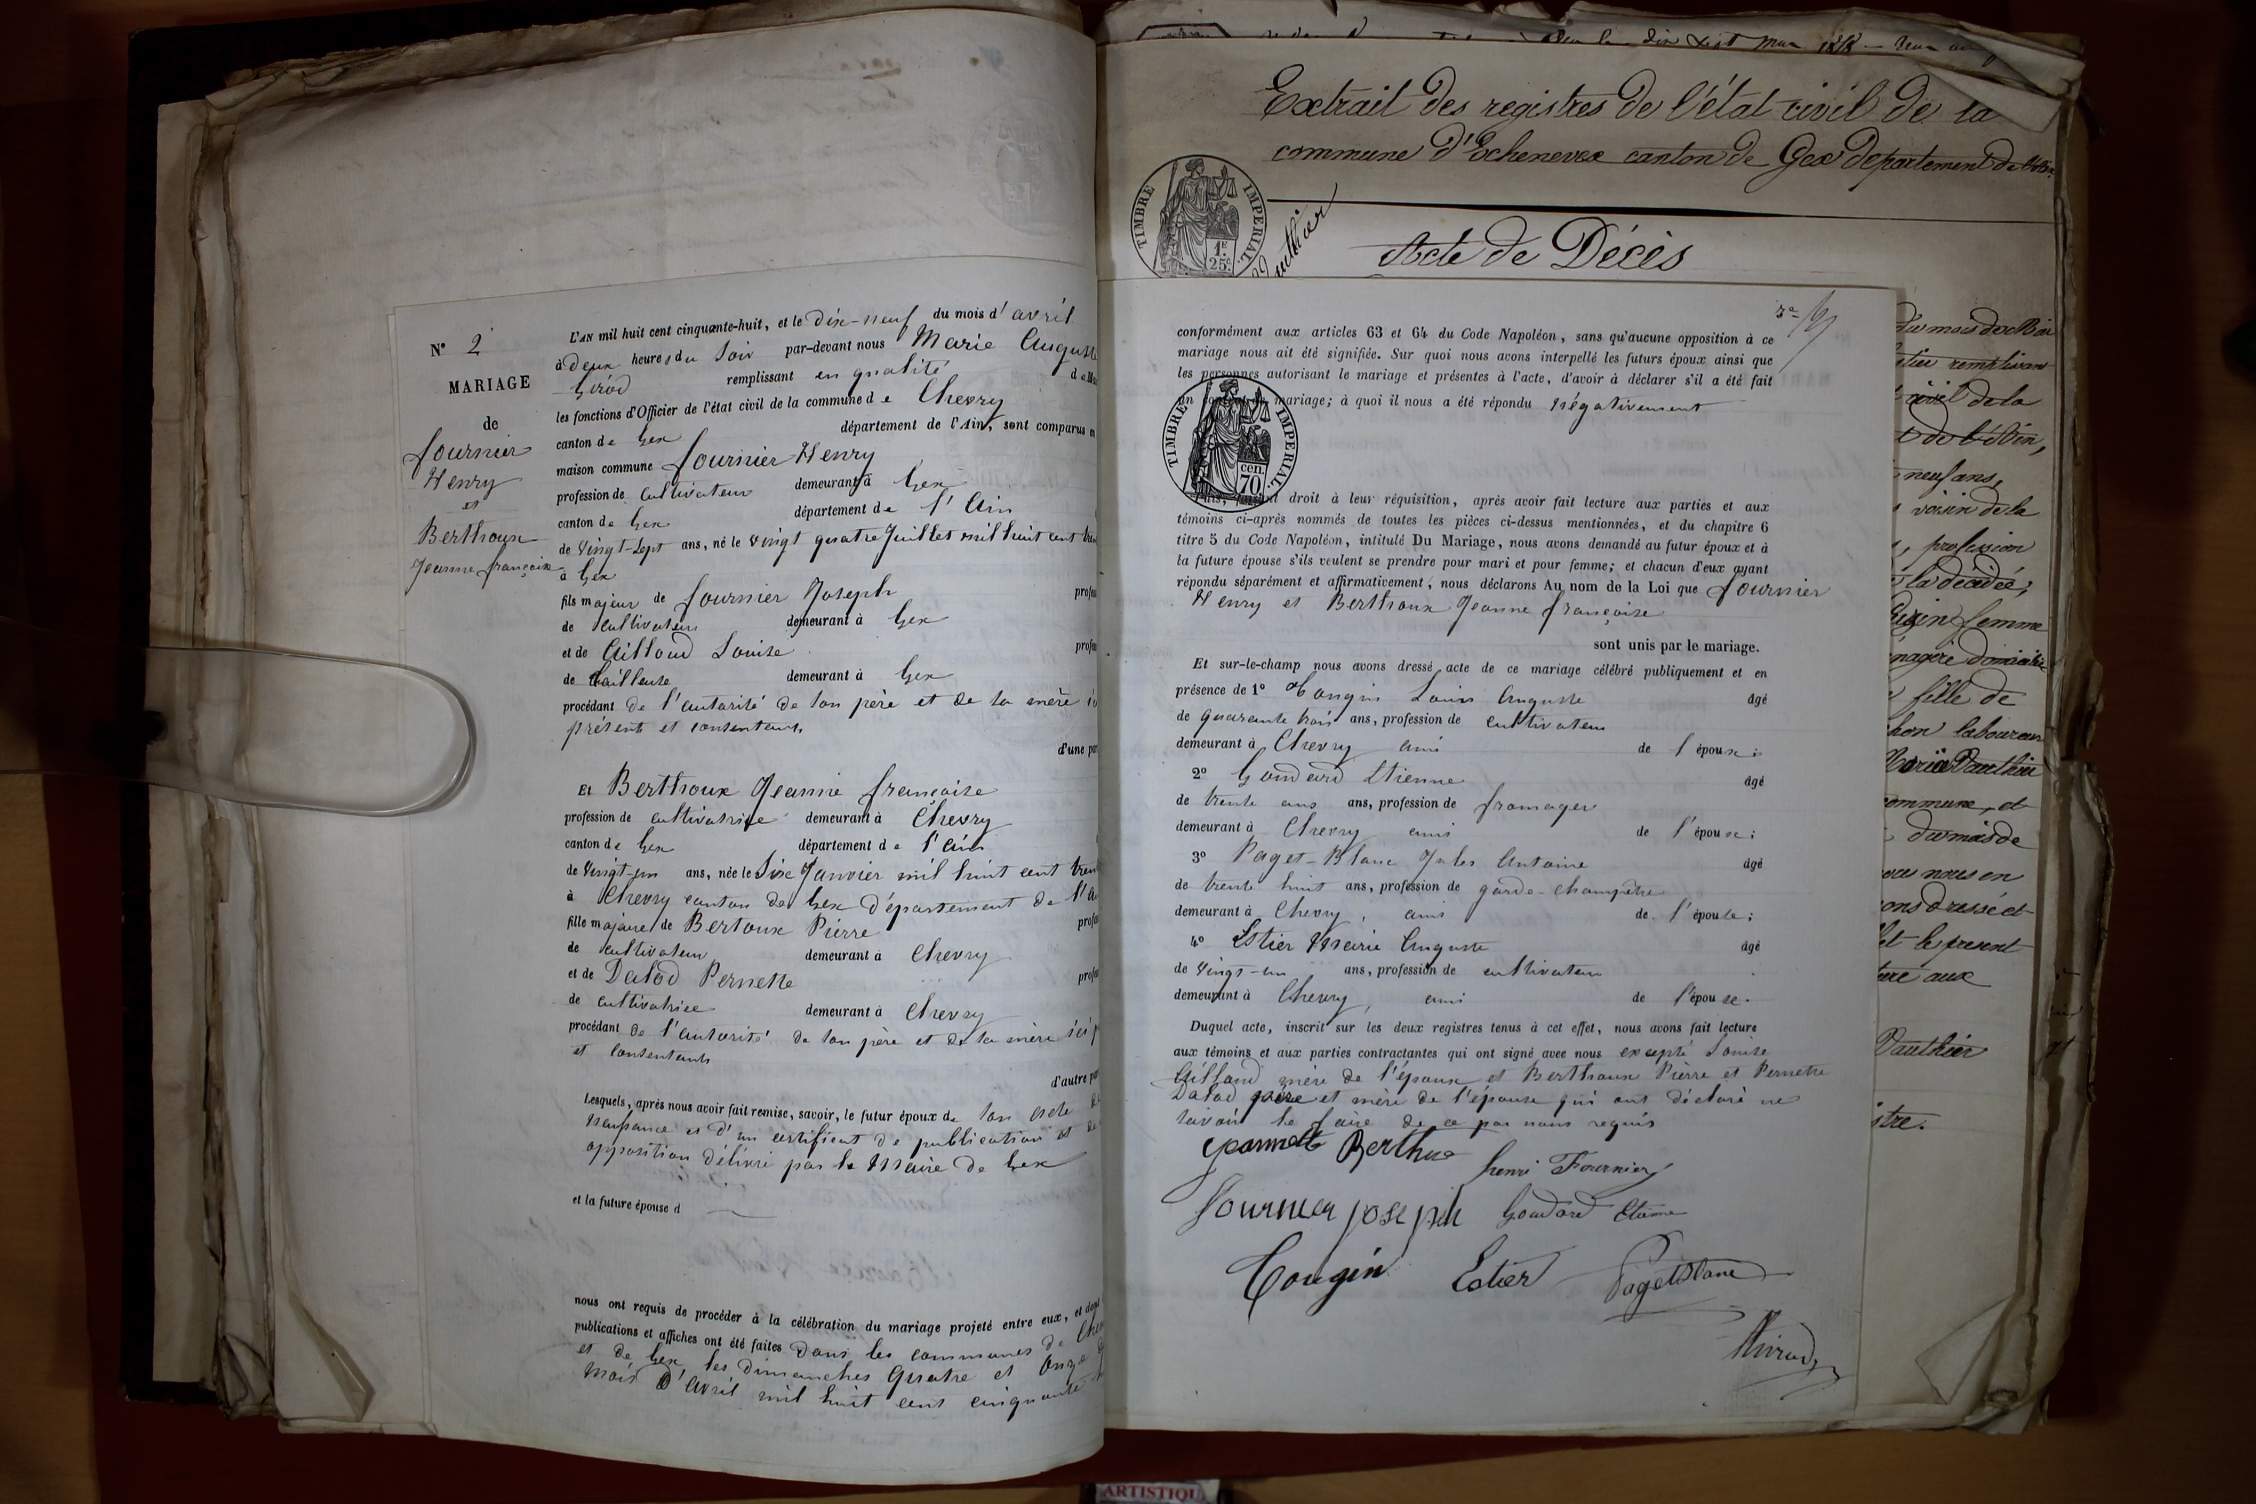 N° 2
MARIAGE
de
fournier
Henry
et
Berthoux
Jeanne françoise
L'AN mil huit cent cinquante-huit, et le dix-neuf du mois d'avril
à deux heures du soir par-devant nous Marie Auguste
Girod remplissant en qualité de
les fonctions d'Officier de l'état civil de la commune de Chevry
canton de Gex département de l'Ain, sont comparus en
maison commune fournier Henry
profession de cultivateur demeurant à Gex
canton de Gex département de l'Ain
de vingt-sept ans, né le vingt quatre Juillet mil huit cent
à Gex
fils majeur de fournier Joseph
de cultivateur demeurant à Gex
et de Louise
de tailleuse demeurant à Gex
procédant de l'autorité de son père et de sa mère
présents et consentants
d'une
Et Berthoux Jeanne françoise
profession de cultivatrice demeurant à Chevry
canton de Gex département de l'Ain
de vingt-un ans, née le Six Janvier mil huit cent
à Chevry canton de Gex département de
fille majeure de Bertoux Pierre
de cultivateur demeurant à Chevry
et de Dalod Pernette
de cultivatrice demeurant à Chevry
procédant de l'autorité de son père et de sa mère ici
et consentants
d'autre
Lesquels, après nous avoir fait remise, savoir, le futur époux de son acte de
naissance et d'un certificat de publication et de
opposition délivré par le Maire de Gex
et la future épouse d
nous ont requis de procéder à la célébration du mariage projeté entre eux, et dont
publications et affiches ont été faites dans les communes de
et de Gex les dimanches quatre et onze
mois d'avril mil huit cent cinquante
Extrait des registres de l'état civil de la
commune d'Echenevex canton de Gex département de l'Ain
TIMBRE IMPERIAL.
1F. 25c.
Acte de Décès
conformément aux articles 63 et 64 du Code Napoléon, sans qu'aucune opposition à ce
mariage nous ait été signifiée. Sur quoi nous avons interpellé les futurs époux ainsi que
les personnes autorisant le mariage et présentes à l'acte, d'avoir à déclarer s'il a été fait
un mariage; à quoi il nous a été répondu négativement
TIMBRE IMPERIAL.
cen. 70
droit à leur réquisition, après avoir fait lecture aux parties et aux
témoins ci-après nommés de toutes les pièces ci-dessus mentionnées, et du chapitre 6
titre 5 du Code Napoléon, intitulé Du Mariage, nous avons demandé au futur époux et à
la future épouse s'ils veulent se prendre pour mari et pour femme; et chacun d'eux ayant
répondu séparément et affirmativement, nous déclarons Au nom de la Loi que fournier
Henry et Berthoux Jeanne françoise
sont unis par le mariage.
Et sur-le-champ nous avons dressé acte de ce mariage célébré publiquement et en
présence de 1° Cougin Louis Auguste âgé
de quarante trois ans, profession de cultivateur
demeurant à Chevry ami de l'épouse;
2° Goudard Etienne âgé
de trente ans ans, profession de fromager
demeurant à Chevry ami de l'épouse;
3° Paget-Blanc Jules Antoine âgé
de trente huit ans, profession de garde-champêtre
demeurant à Chevry, ami de l'épouse;
4° Estier Marie Auguste âgé
de vingt-un ans, profession de cultivateur
demeurant à Chevry, ami de l'épouse.
Duquel acte, inscrit sur les deux registres tenus à cet effet, nous avons fait lecture
aux témoins et aux parties contractantes qui ont signé avec nous excepté Louise
mère de l'époux et Berthoux Pierre et Pernette
Dalod père et mère de l'épouse qui ont déclaré ne
savoir le faire de ce par nous requis
Jeannette Berthux henri Fournier
fournier joseph Goudard Etienne
Cougin Estier Pagetblanc
Girod
du mois de
civil de la
de l'Ain,
neuf ans,
voisin de la
, profession
la décédée;
femme
fille de
laboureur
commune, et
du mois de
nous en
dressé et
et le présent
aux
Dauthier
ARTISTIQU